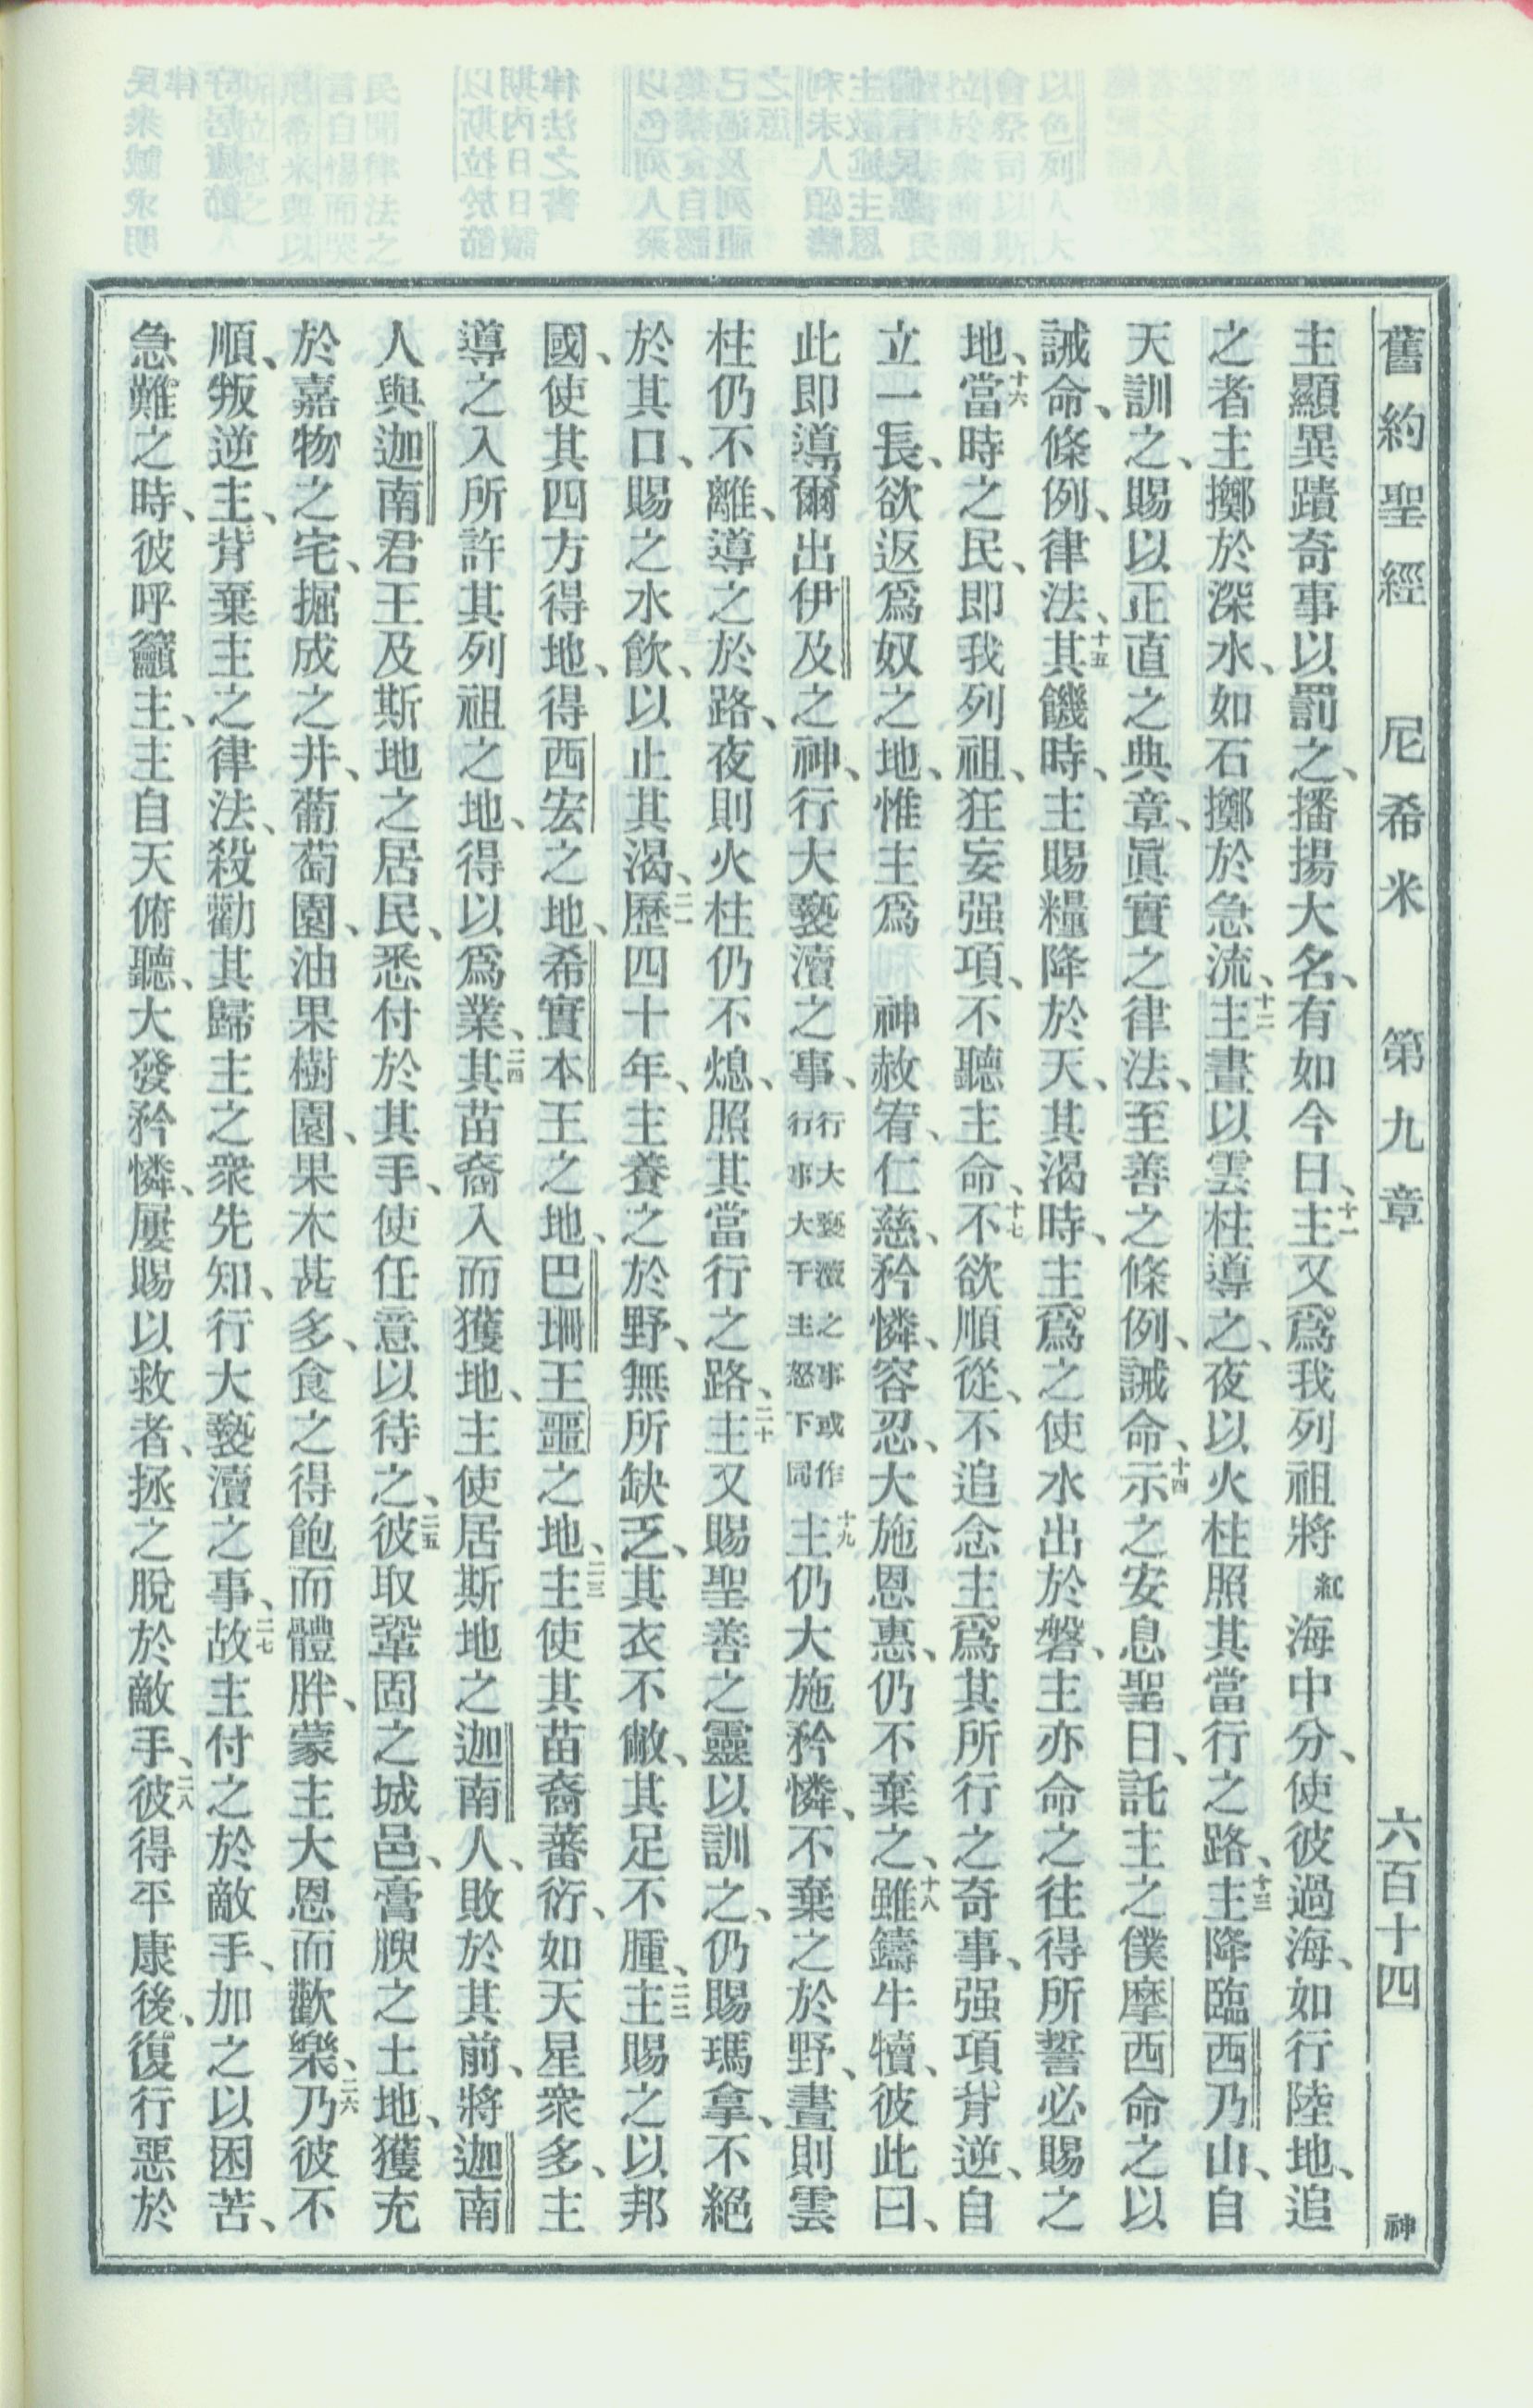 舊約聖經 尼希米 第九章 六百十四 神
主顯異蹟奇事以罰之、播揚大名、有如今日、十一主又爲我列祖將紅海中分、使彼過海、如行陸地、追
之者主擲於深水、如石擲於急流、十二主晝以雲柱導之、夜以火柱照其當行之路、十三主降臨西乃山、自
天訓之、賜以正直之典章、眞實之律法、至善之條例、誡命、十四示之安息聖日、託主之僕摩西命之以
誡命、條例、律法、十五其饑時、主賜糧降於天、其渴時、主爲之使水出於磐、主亦命之往得所誓必賜之
地、十六當時之民、即我列祖、狂妄强項、不聽主命、十七不欲順從、不追念主爲其所行之奇事、强項背逆、自
立一長、欲返爲奴之地、惟主爲 神赦宥、仁慈、矜憐、容忍、大施恩惠、仍不棄之、十八雖鑄牛犢、彼此曰、
此即導爾出伊及之神、行大褻瀆之事、行大褻瀆之事或作行事大干主怒下同十九主仍大施矜憐、不棄之於野、晝則雲
柱仍不離、導之於路、夜則火柱仍不熄、照其當行之路、二十主又賜聖善之靈以訓之、仍賜瑪拿、不絕
於其口、賜之水飲、以止其渴、二一歷四十年、主養之於野、無所缺乏、其衣不敝、其足不腫、二二主賜之以邦
國、使其四方得地、得西宏之地、希實本王之地、巴珊王噩之地、二三主使其苗裔蕃衍、如天星衆多、主
導之入所許其列祖之地、得以爲業、二四其苗裔入而獲地、主使居斯地之迦南人、敗於其前、將迦南
人與迦南君王及斯地之居民、悉付於其手、使任意以待之、二五彼取鞏固之城邑、膏腴之土地、獲充
於嘉物之宅、掘成之井、葡萄園、油果樹園、果木甚多、食之得飽而體胖、蒙主大恩而歡樂、二六乃彼不
順、叛逆主、背棄主之律法、殺勸其歸主之衆先知、行大褻瀆之事、二七故主付之於敵手、加之以困苦、
急難之時、彼呼籲主、主自天俯聽、大發矜憐、屢賜以救者、拯之脫於敵手、二八彼得平康後、復行惡於